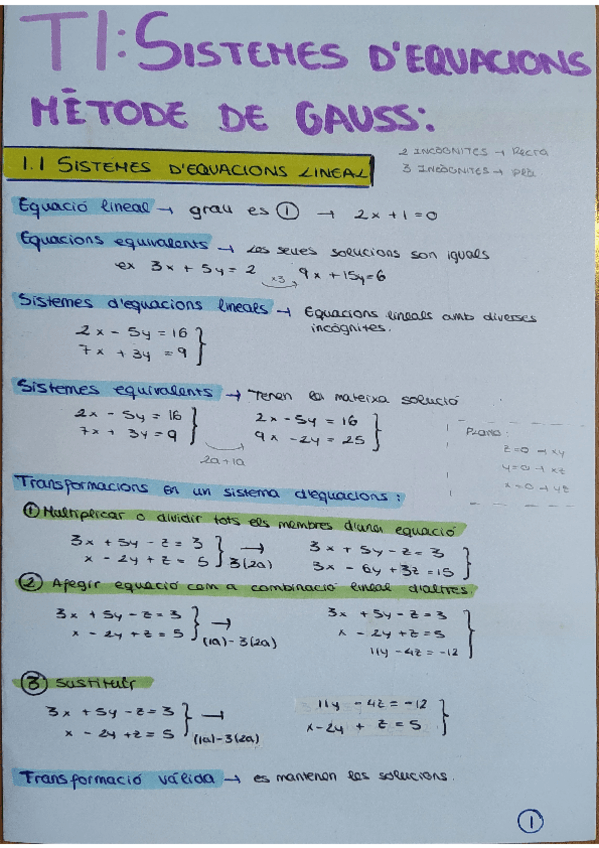 T1: SISTEMES D'EQUACIONS
MÈTODE DE GAUSS:
2 INCÒGNITES → RECTA
1.1 SISTEMES D'EQUACIONS LINEAL
3 INCÒGNITES →
Equació lineal → grau es ① → 2x + 1 = 0
Equacions equivalents → Les seues solucions son iguals
ex 3x + 5y = 2 ×3 9x + 15y = 6
Sistemes d'equacions lineals → Equacions lineals amb diverses
incògnites.
2x - 5y = 16
7x + 3y = 9
Sistemes equivalents → Tenen la mateixa solució
2x - 5y = 16 2x - 5y = 16
7x + 3y = 9 9x - 2y = 25
2a+1a
Plano:
z=0 → xy
y=0 → xz
x=0 → yz
Transformacions en un sistema d'equacions:
① Multiplicar o dividir tots els membres d'una equació
3x + 5y - z = 3 → 3x + 5y - z = 3
x - 2y + z = 5 3(2a) 3x - 6y + 3z = 15
② Afegir equació com a combinació lineal d'altres.
3x + 5y - z = 3 → 3x + 5y - z = 3
x - 2y + z = 5 (1a)-3(2a) x - 2y + z = 5
11y - 4z = -12
③ Sustituir
3x + 5y - z = 3 → 11y - 4z = -12
x - 2y + z = 5 (1a)-3(2a) x - 2y + z = 5
Transformació válida → es mantenen les solucions.
①